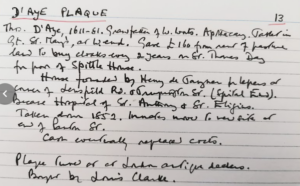 D'AYE PLAQUE 13
Tho. D'Aye, 1611-81. Grandson of W. Apothecary. Tablet in
Gt. St. Mary's, at W end. Gave £160 from rent of pasture
land to buy cloaks every 2 years on St. Thomas Day
for poor of Spittle House.
House founded by Henry de for lepers at
corner of Lensfield Rd. & Trumpington St. (Spital End).
Became Hospital of St. Anthony & St. Eligius.
Taken down 1852. Inmates moved to new site at
end of Panton St.
Cash eventually replaced coats.
Plaque found at London antique dealers.
Bought by Louis Clarke.